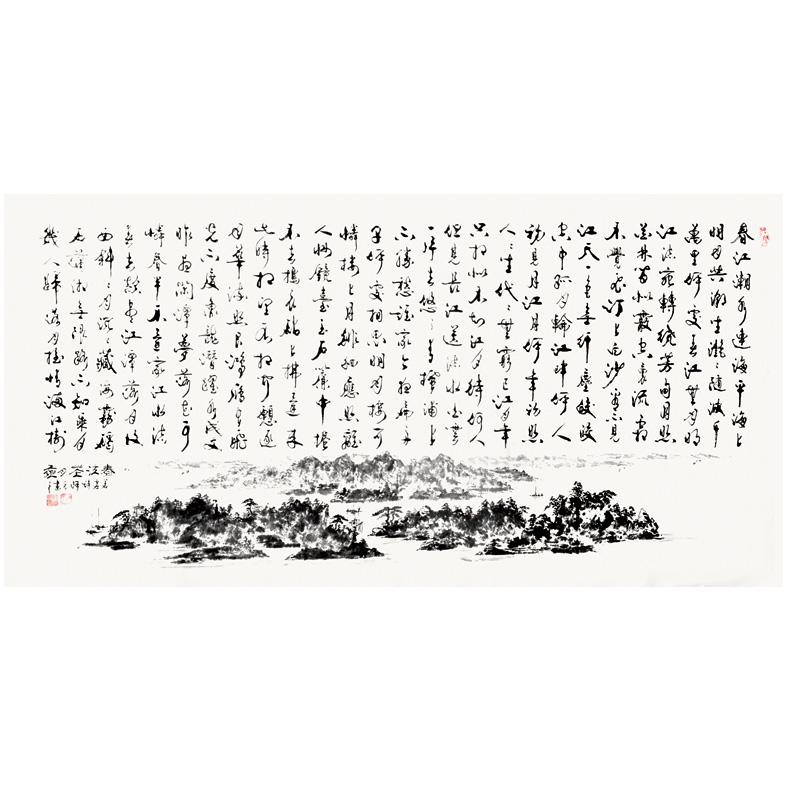 春江潮水連海平海上
明月共潮生灩々隨波千
萬里何處春江無月明
江流宛轉繞芳甸月照
花林皆似霰空裏流霜
不覺飛汀上白沙看不見
江天一色無纖塵皎皎
空中孤月輪江畔何人
初見月江月何年初照
人々生代々無窮已江月年
只相似不知江月待何人
但見長江送流水白雲
一片去悠々青楓浦上
不勝愁誰家今夜扁舟
子何處相思明月樓可
憐樓上月徘徊應照離
人妝鏡臺玉戶簾中捲
不去搗衣砧上拂還來
此時相望不相聞願逐
月華流照君鴻雁長飛
光不度魚龍潛躍水成文
昨夜閒潭夢落花可
憐春半不還家江水流
春去欲盡江潭落月復
西斜々月沉々藏海霧碣
石瀟湘無限路不知乘月
幾人歸落月搖情滿江樹